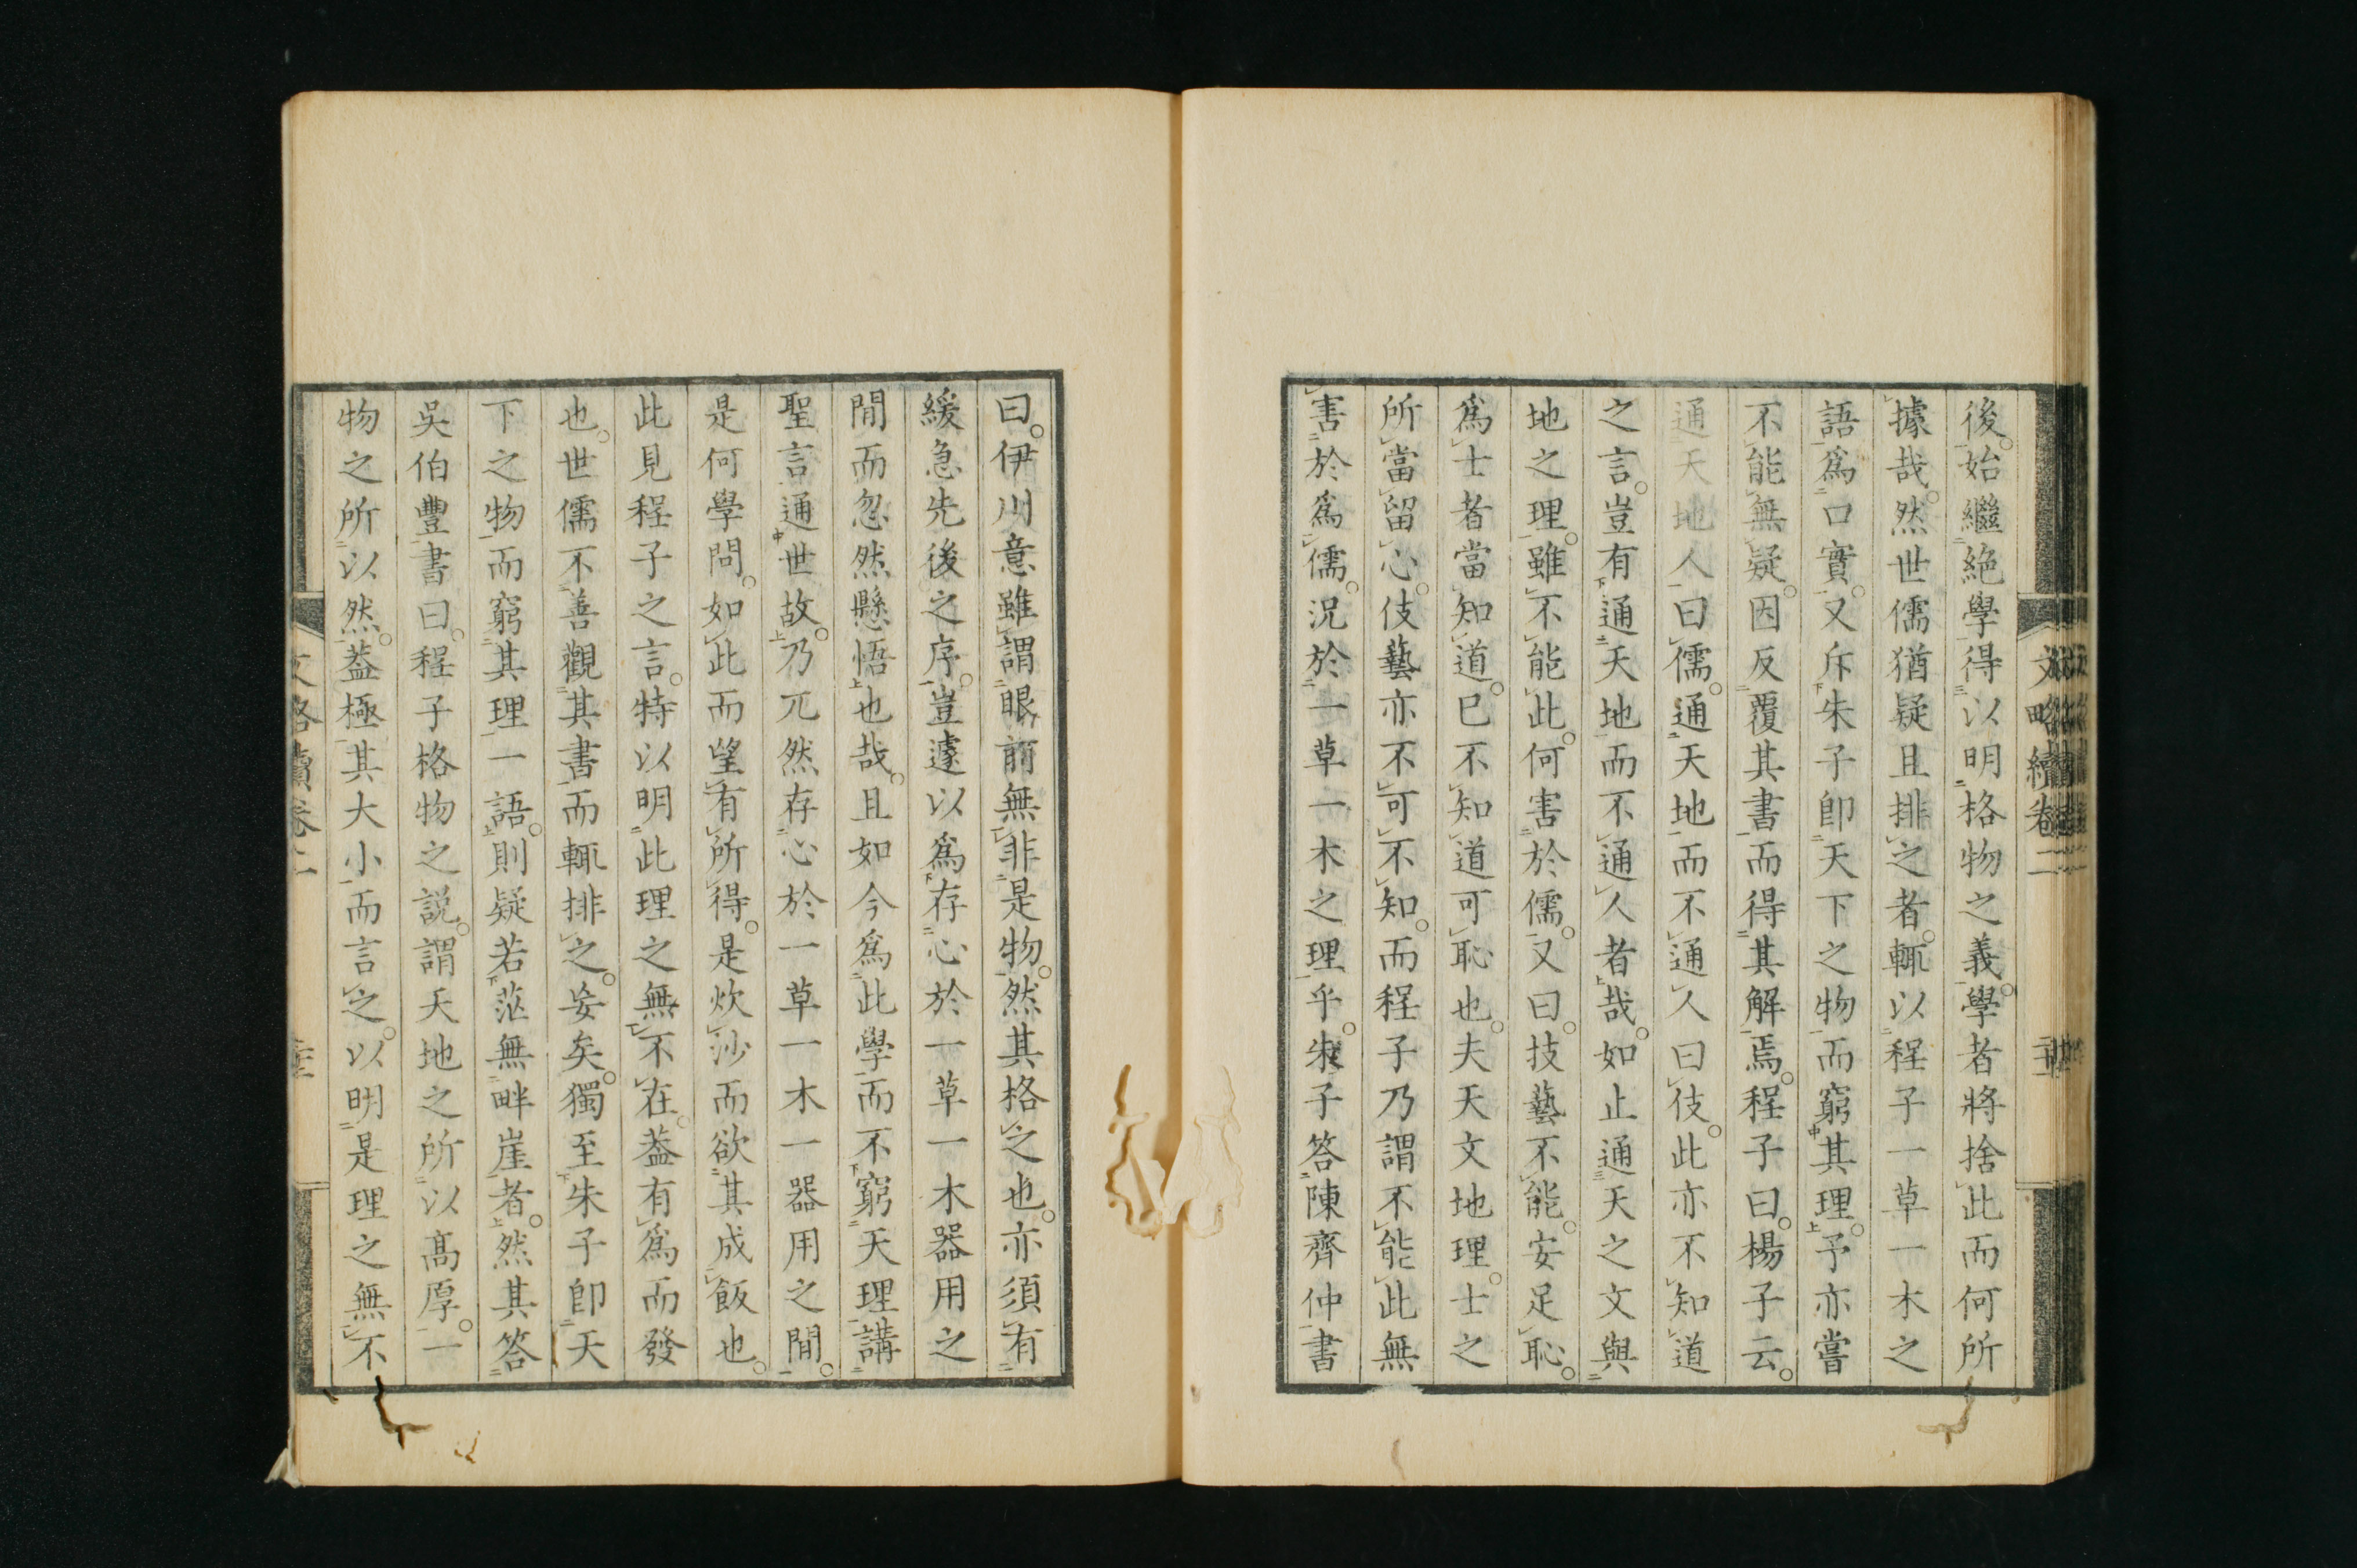 後。始繼絶學得以明格物之義。學者將捨此而何所
據哉。然世儒猶疑且排之者。輒以程子一草一木之
語爲口實。又斥朱子卽天下之物而窮其理。予亦嘗
不能無疑。因反覆其書而得其解焉。程子曰。楊子云。
通天地人曰儒。通天地而不通人曰伎。此亦不知道
之言。豈有通天地而不通人者哉。如止通天之文與
地之理。雖不能此。何害於儒。又曰。技藝不能。安足恥。
爲士者當知道。已不知道可恥也。夫天文地理。士之
所當留心。伎藝亦不可不知。而程子乃謂不能此無
害於爲儒。況於一草一木之理乎。朱子答陳齊仲書
文略續卷二
曰。伊川意雖謂眼前無非是物。然其格之也。亦須有
緩急先後之序。豈遽以爲存心於一草一木器用之
閒而忽然懸悟也哉。且如今爲此學而不窮天理講
聖言通世故。乃兀然存心於一草一木一器用之閒。
是何學問。如此而望有所得。是炊沙而欲其成飯也。
此見程子之言。特以明此理之無不在。蓋有爲而發
也。世儒不善觀其書而輒排之。妄矣。獨至朱子卽天
下之物而窮其理一語。則疑若茫無畔崖者。然其答
吳伯豐書曰。程子格物之説。謂天地之所以高厚。一
物之所以然。蓋極其大小而言之。以明是理之無不
文略續卷二